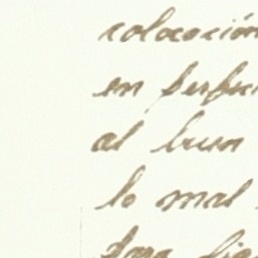 colocación
en perfec
al buen
lo mal